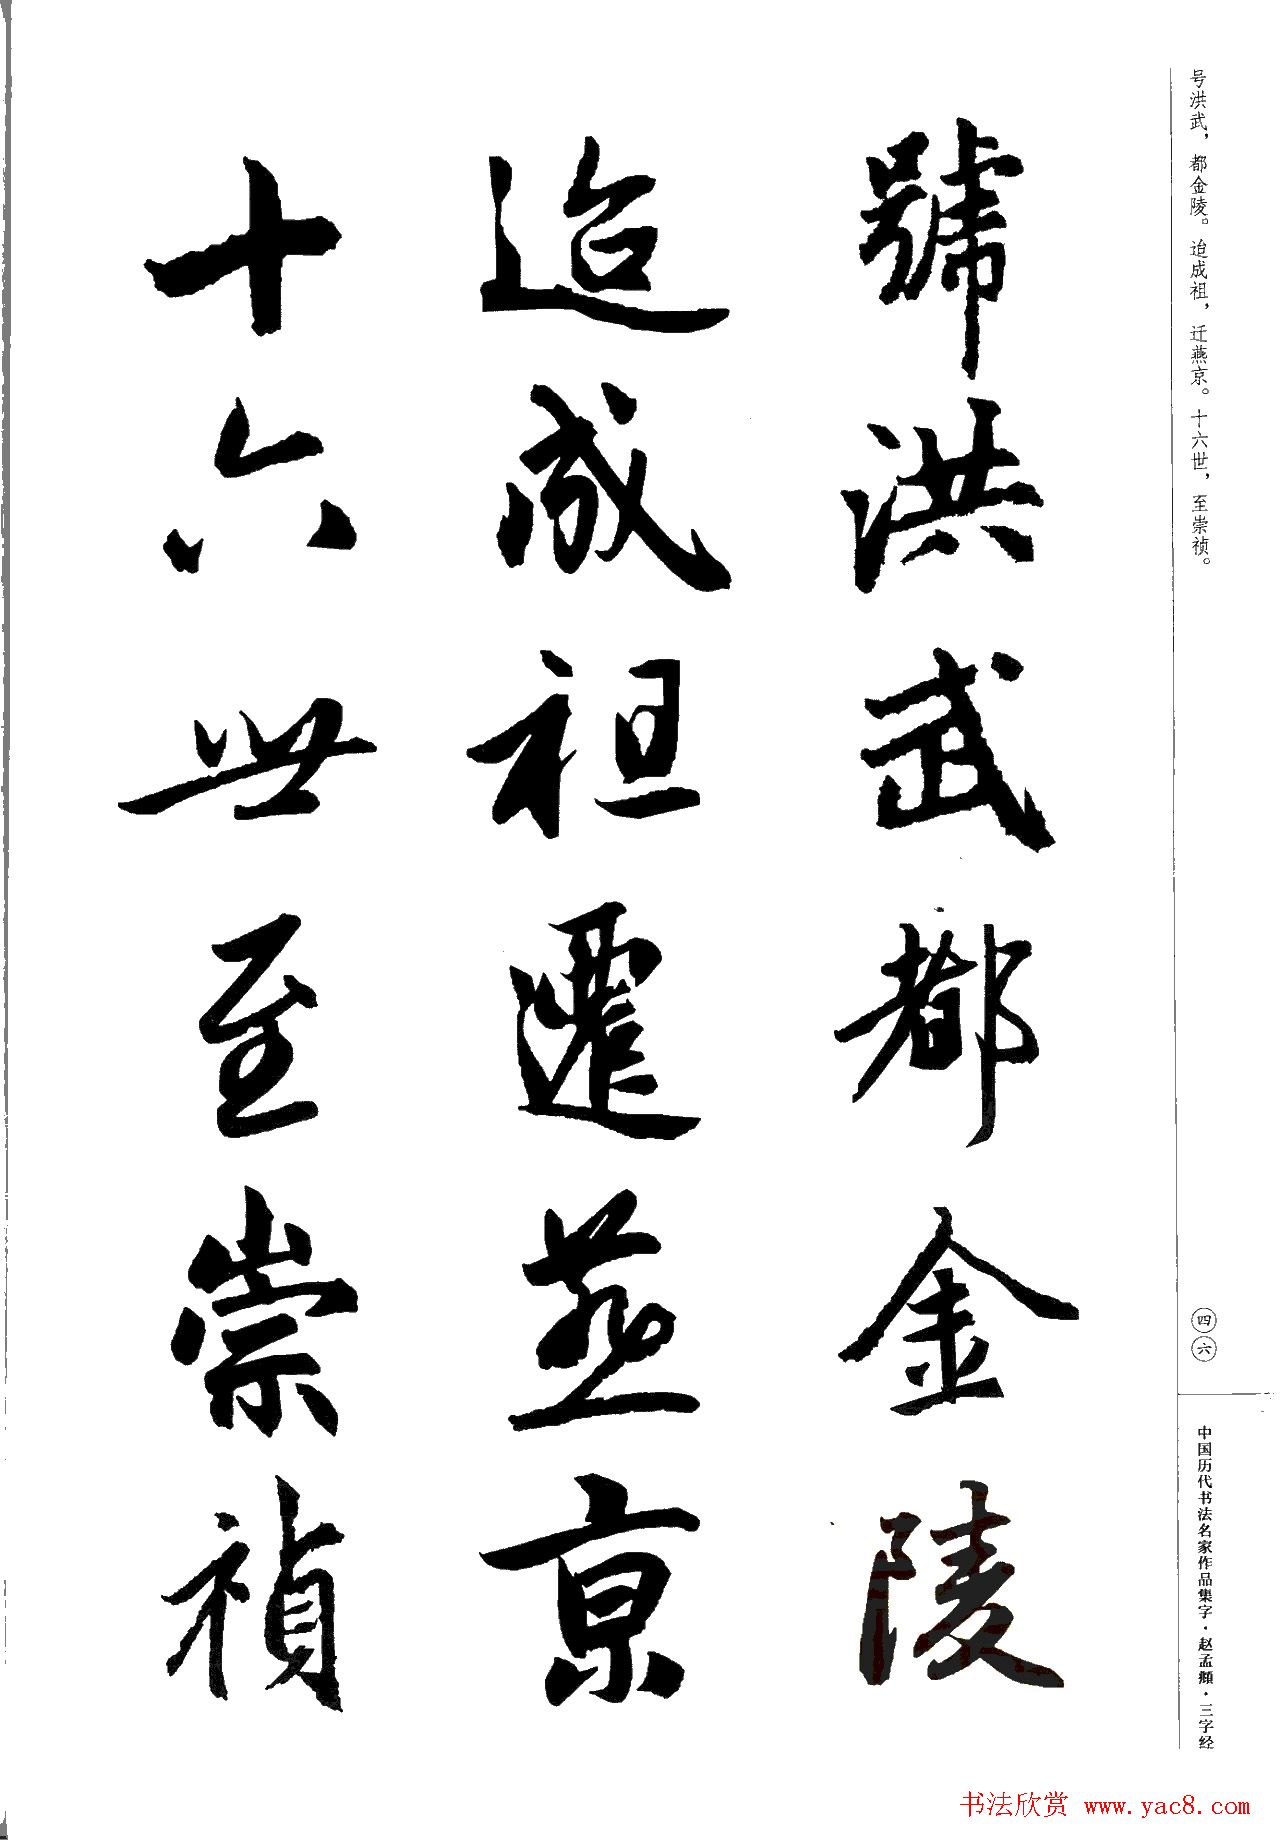 号洪武，都金陵。迨成祖，迁燕京。十六世，至崇祯。
號洪武都金陵
迨成祖遷燕京
十六世至崇禎
四六
中国历代书法名家作品集字·赵孟頫·三字经
书法欣赏 www.yac8.com